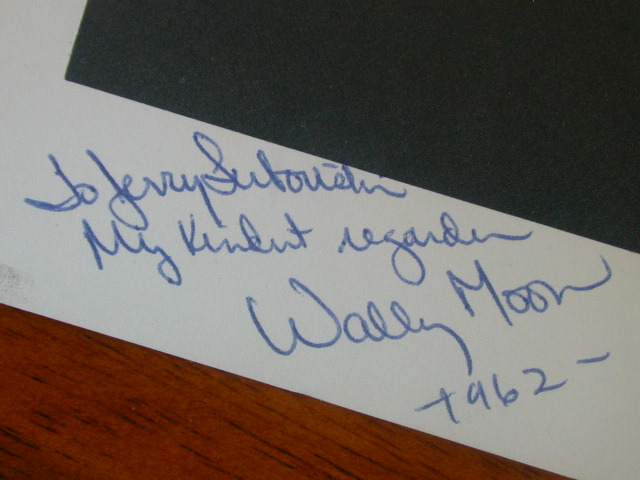 To Jerry
My Kindest regards
Wally Moon
1962 -